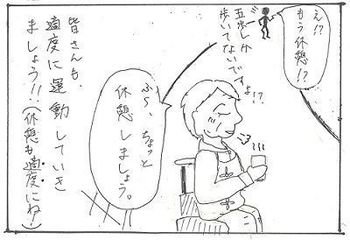 え!?
もう休憩!?
五歩しか
歩いてないです
よ!?
ふぅ、ちょっと
休憩しましょう。
皆さんも、
適度に運動していき
ましょう!!(休憩も適度にね!)